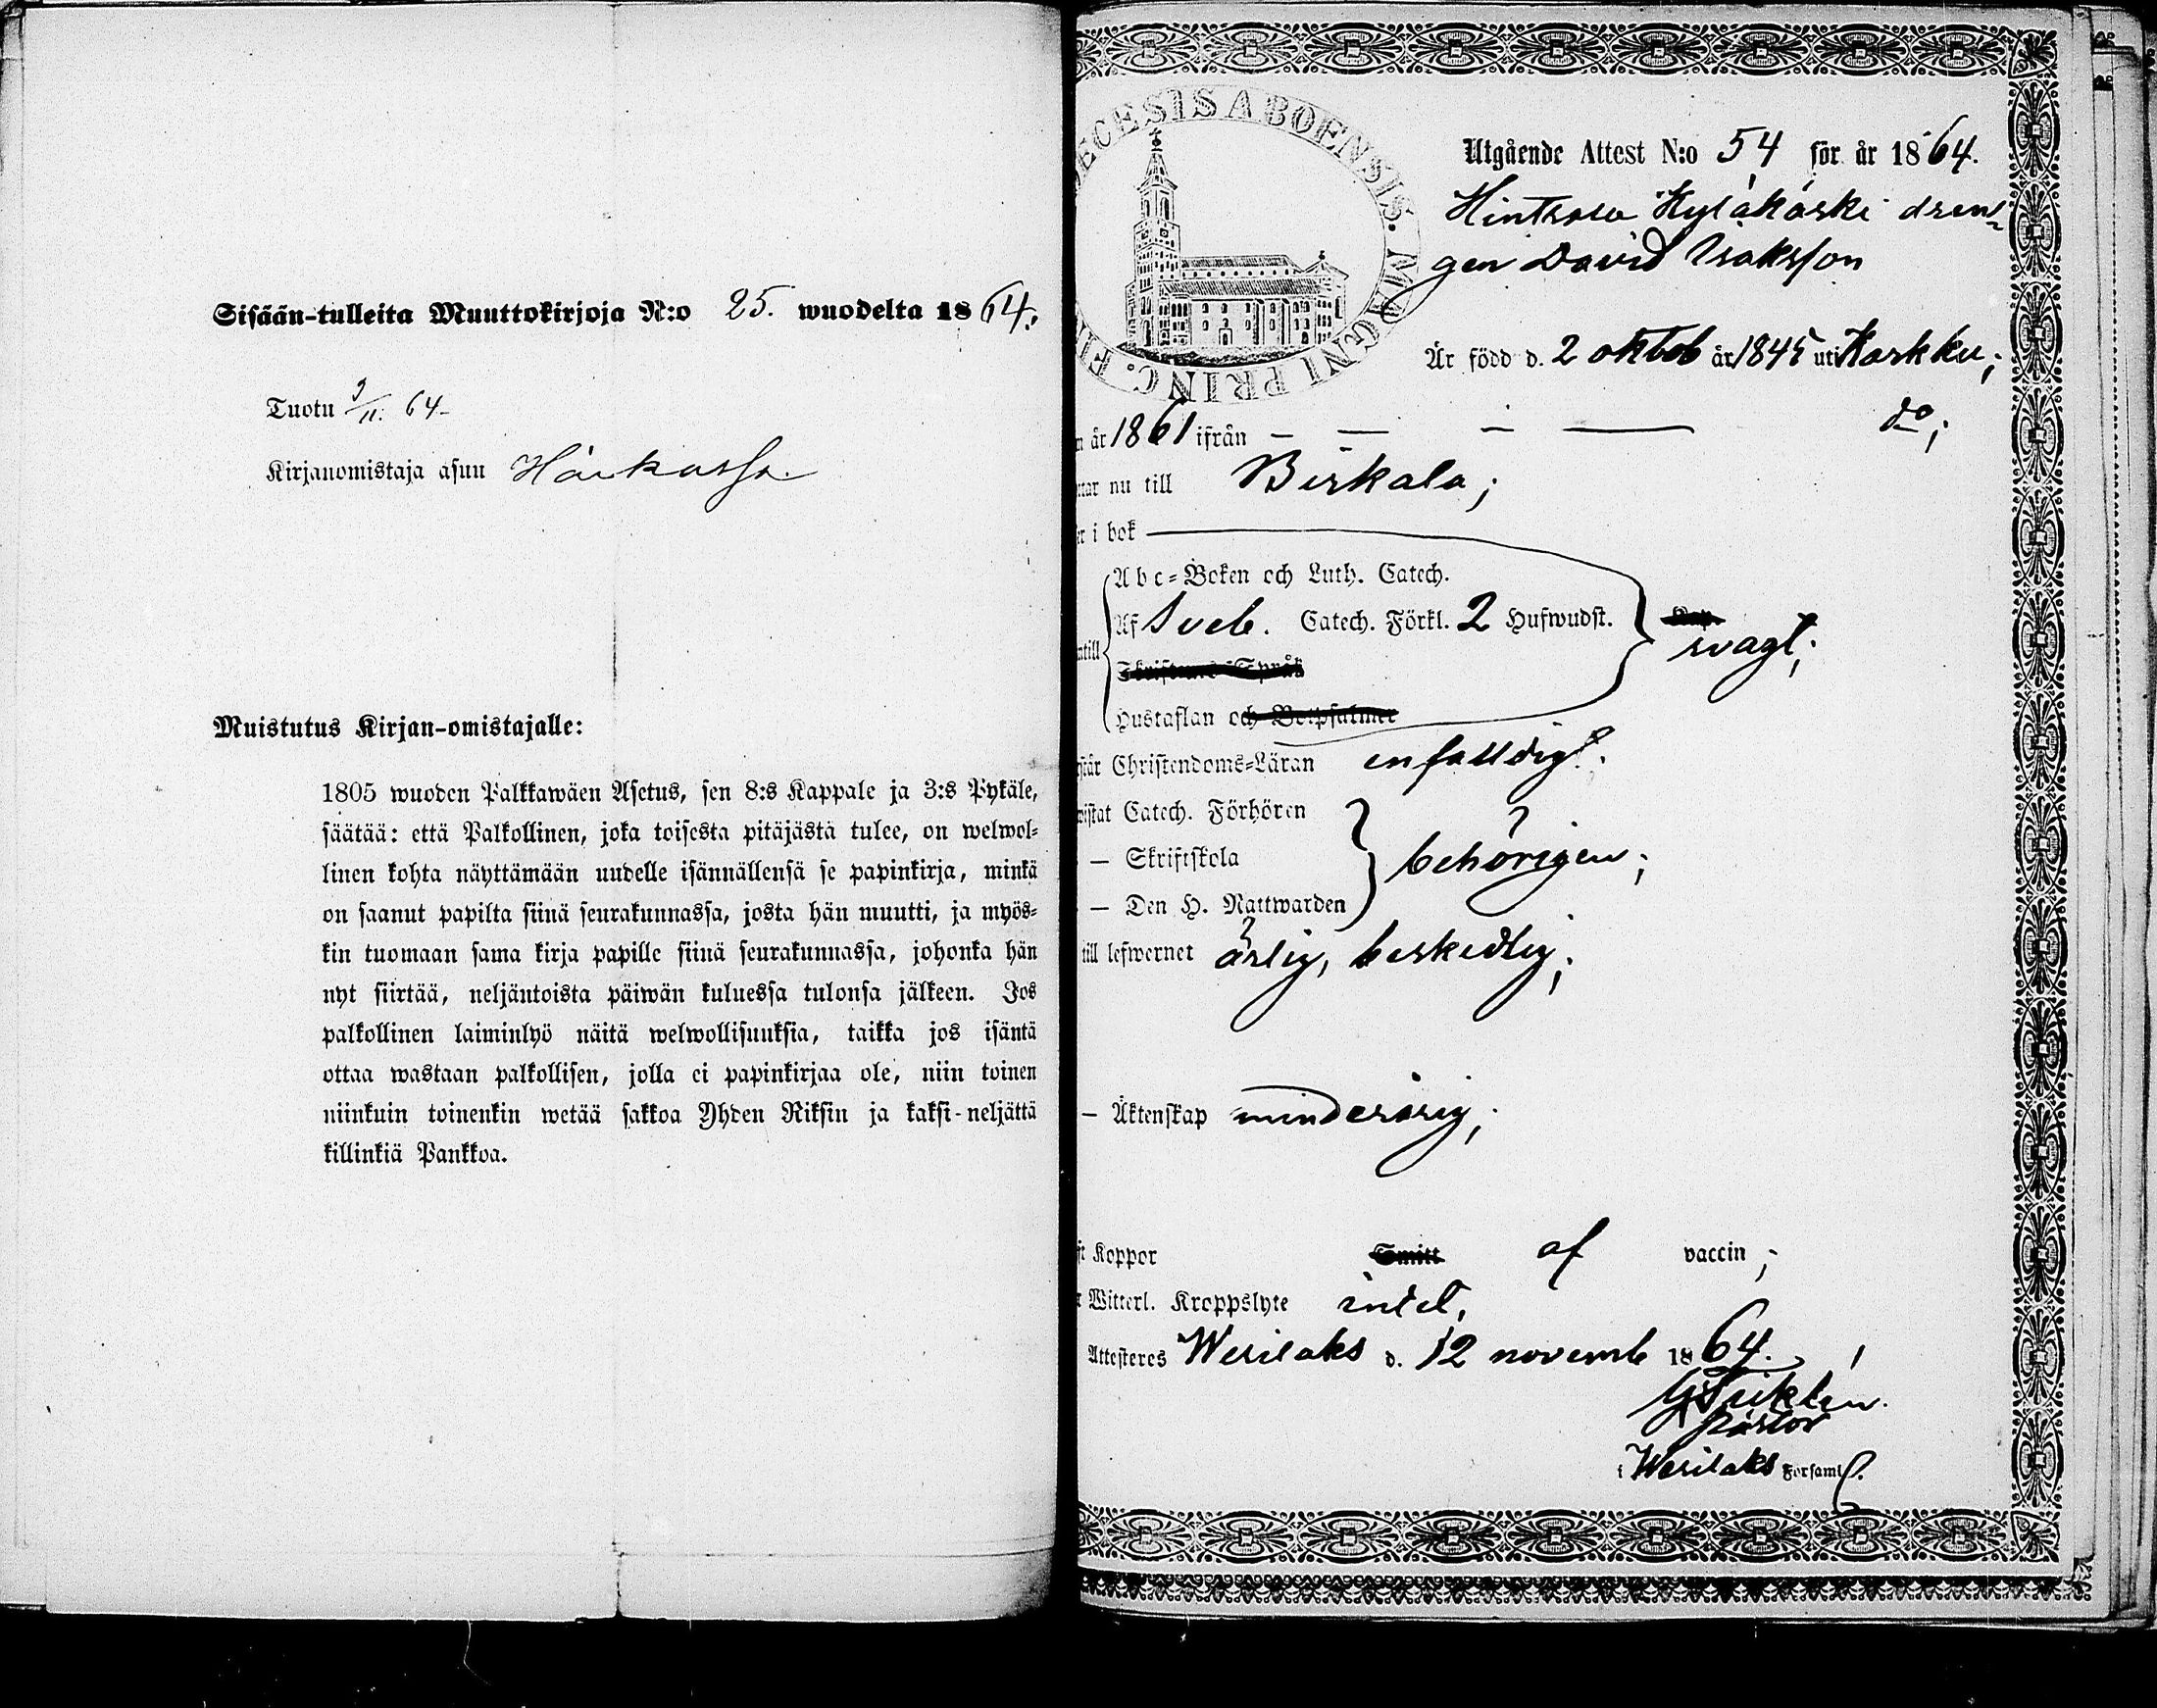 Sisään-tulleita Muuttokirjoja N:o 25. wuodelta 1864.
Tuotu 9/11. 64
Kirjanomistaja asuu
Muistutus Kirjan-omistajalle:
1805 wuoden Palkkawäen Asetus, sen 8:s Kappale ja 3:s Pykäle,
säätää: että Palkollinen, joka toisesta pitäjästä tulee, on welwol=
linen kohta näyttämään uudelle isännällensä se papinkirja, minkä
on saanut papilta siinä seurakunnassa, josta hän muutti, ja myös=
kin tuomaan sama kirja papille siinä seurakunnassa, johonka hän
nyt siirtää, neljäntoista päiwän kuluessa tulonsa jälkeen. Jos
palkollinen laiminlyö näitä welwollisuuksia, taikka jos isäntä
ottaa wastaan palkollisen, jolla ei papinkirjaa ole, niin toinen
niinkuin toinenkin wetää sakkoa Yhden Riksin ja kaksi-neljättä
killinkiä Pankkoa.
ECESIS ABOENSIS. MAGNI PRINC. FI
Utgående Attest N:o 54 för år 1864.
Hintsala Kyläkoski dren=
gen David Isaksson
Är född d. 2 oktob år 1845 uti Karkku;
n år 1861 ifrån — — — — do;
mar nu till Birkala;
er i bok
Abc=Boken och Luth. Catech.
Af Sveb. Catech. Förkl. 2 Hufwudst.
svagt;
ntill
Skriftens Språk
Hustaflan och Botpsalmer
står Christendoms=Läran enfalldigt.
wistat Catech. Förhören
— Skriftskola behörigen;
— Den H. Nattwarden
till lefwernet ärlig, beskedlig;
— Äktenskap minderårig;
ft Koppor Smitt af vaccin;
r Witterl. Kroppslyte intet,
Attesteres Wesilaks d. 12 novemb 1864.
Pastor
i Wesilaks Forsaml.